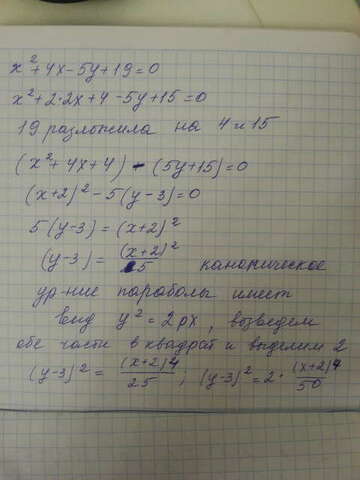 x² + 4x - 5y + 19 = 0
x² + 2·2x + 4 - 5y + 15 = 0
19 разложила на 4 и 15
(x² + 4x + 4) - (5y + 15) = 0
(x+2)² - 5(y-3) = 0
5(y-3) = (x+2)²
(y-3) = (x+2)²/5 каноническое
ур-ние параболы имеет
вид y² = 2px, возведем
обе части в квадрат и выделим 2
(y-3)² = (x+2)4/25; (y-3)² = 2 · (x+2)4/50